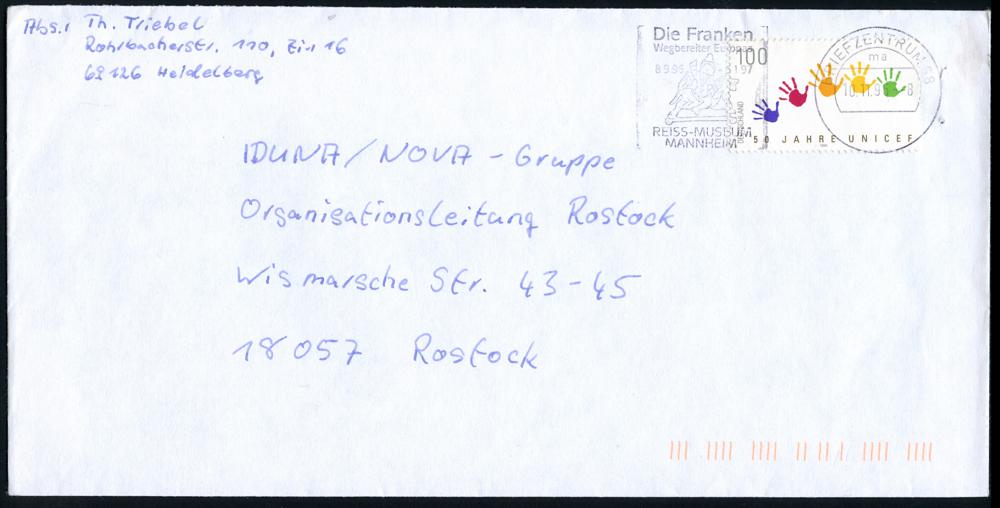 Abs.: Th. Triebel
Rohrbacherstr. 110, Zi. 16
69126 Heidelberg
Die Franken
Wegbereiter Europas
8.9.96 97
REISS-MUSEUM
MANNHEIM
100
DEUTSCHLAND
50 JAHRE UNICEF
BRIEFZENTRUM 68
ma
10.11.96 8
IDUNA/NOVA - Gruppe
Organisationsleitung Rostock
Wismarsche Str. 43-45
18057 Rostock